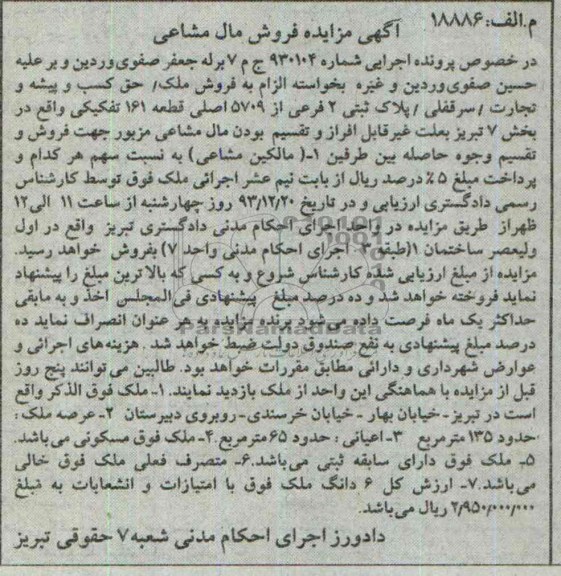 م.الف: ۱۸۸۸۶
آگهی مزایده فروش مال مشاعی
در خصوص پرونده اجرایی شماره ۹۳۰۱۰۴ ج م ۷ برله جعفر صفوی‌وردین و بر علیه
حسین صفوی‌وردین و غیره بخواسته الزام به فروش ملک/ حق کسب و پیشه و
تجارت /سرقفلی /پلاک ثبتی ۲ فرعی از ۵۷۰۹ اصلی قطعه ۱۶۱ تفکیکی واقع در
بخش ۷ تبریز بعلت غیرقابل افراز و تقسیم بودن مال مشاعی مزبور جهت فروش و
تقسیم وجوه حاصله بین طرفین ۱-( مالکین مشاعی) به نسبت سهم هر کدام و
پرداخت مبلغ ۵٪ درصد ریال از بابت نیم عشر اجرائی ملک فوق توسط کارشناس
رسمی دادگستری ارزیابی و در تاریخ ۹۳/۱۲/۲۰ روز چهارشنبه از ساعت ۱۱ الی۱۲
ظهراز طریق مزایده در واحد اجرای احکام مدنی دادگستری تبریز واقع در اول
ولیعصر ساختمان ۱(طبقه ۳ اجرای احکام مدنی واحد ۷) بفروش خواهد رسید.
مزایده از مبلغ ارزیابی شده کارشناس شروع و به کسی که بالاترین مبلغ را پیشنهاد
نماید فروخته خواهد شد و ده درصد مبلغ پیشنهادی فی‌المجلس اخذ و به مابقی
حداکثر یک ماه فرصت داده می‌شود برنده مزایده به هر عنوان انصراف نماید ده
درصد مبلغ پیشنهادی به نفع صندوق دولت ضبط خواهد شد. هزینه‌های اجرائی و
عوارض شهرداری و دارائی مطابق مقررات خواهد بود. طالبین می‌توانند پنج روز
قبل از مزایده با هماهنگی این واحد از ملک بازدید نمایند. ۱- ملک فوق الذکر واقع
است در تبریز-خیابان بهار -خیابان خرسندی-روبروی دبیرستان ۲-عرصه ملک:
حدود ۱۳۵ مترمربع ۳-اعیانی: حدود ۶۵ مترمربع ۴- ملک فوق مسکونی می‌باشد.
۵- ملک فوق دارای سابقه ثبتی می‌باشد. ۶- متصرف فعلی ملک فوق خالی
می‌باشد. ۷- ارزش کل ۶ دانگ ملک فوق با امتیازات و انشعابات به مبلغ
۲/۹۵۰/۰۰۰/۰۰۰ ریال می‌باشد.
دادورز اجرای احکام مدنی شعبه ۷ حقوقی تبریز
ParsNamadData